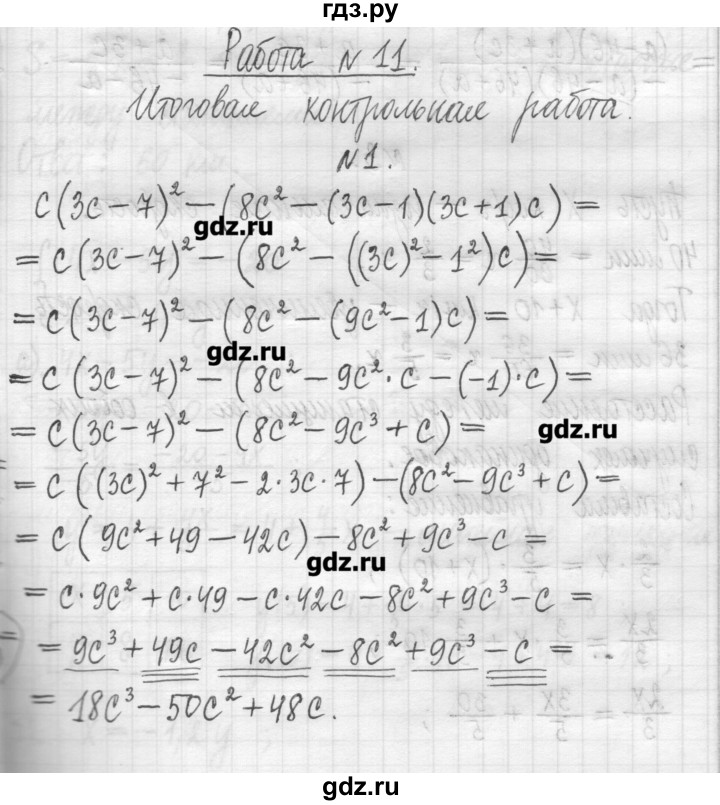 гдз.ру
Работа № 11.
Итоговая контрольная работа.
№1.
c(3c-7)² - (8c² - (3c-1)(3c+1)c) =
gdz.ru
= c(3c-7)² - (8c² - ((3c)² - 1²)c) =
= c(3c-7)² - (8c² - (9c² - 1)c) =
gdz.ru
= c(3c-7)² - (8c² - 9c²·c - (-1)·c) =
= c(3c-7)² - (8c² - 9c³ + c) =
gdz.ru
= c((3c)² + 7² - 2·3c·7) - (8c² - 9c³ + c) =
= c(9c² + 49 - 42c) - 8c² + 9c³ - c =
gdz.ru
= c·9c² + c·49 - c·42c - 8c² + 9c³ - c =
= 9c³ + 49c - 42c² - 8c² + 9c³ - c =
= 18c³ - 50c² + 48c.
gdz.ru